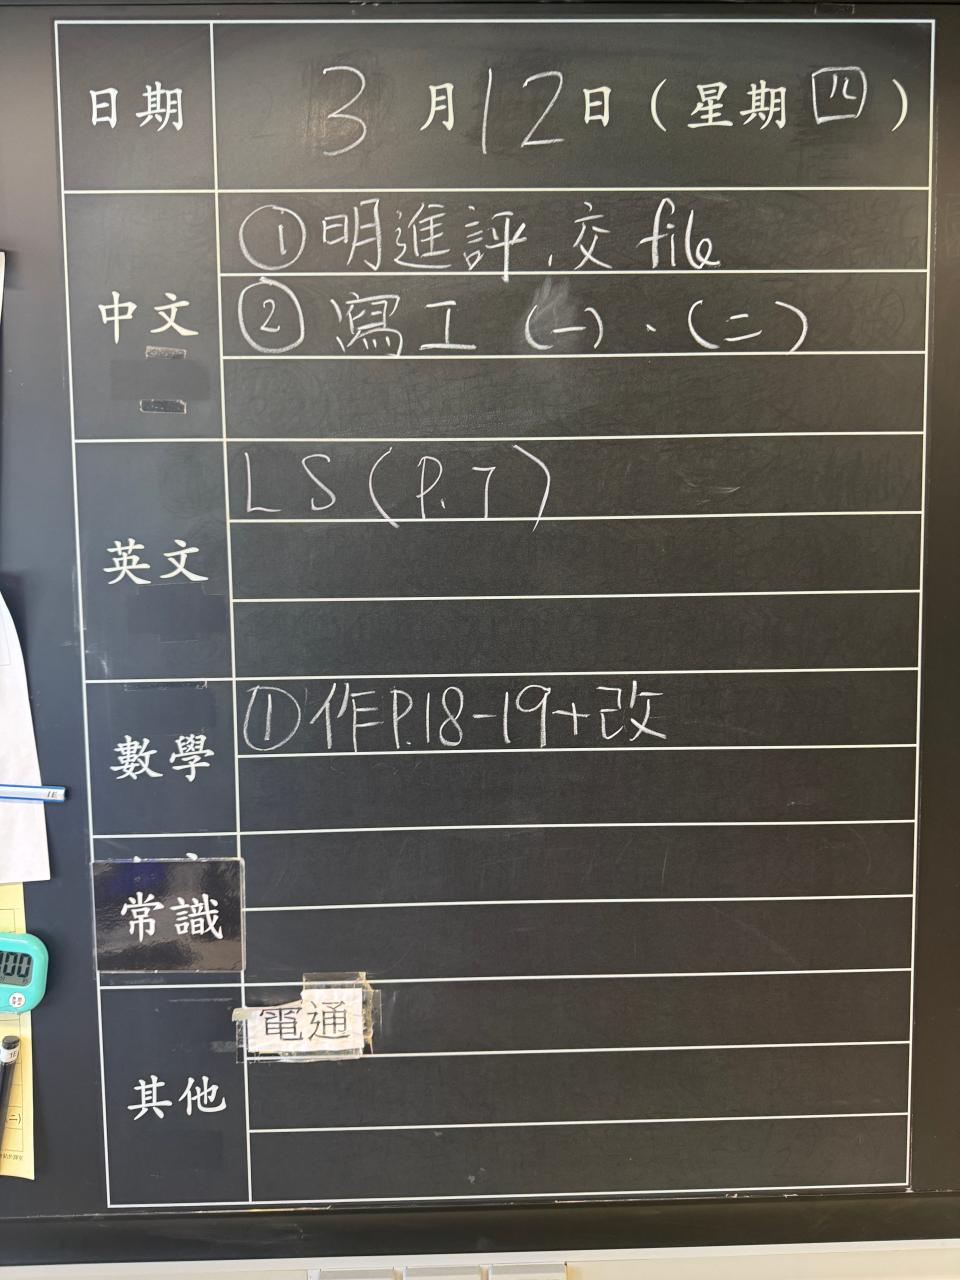 日期 3月12日（星期四）
中文 ①明進評、交file
②寫工（一）、（二）
英文 LS(P.7)
數學 ①作P.18-19+改
常識
其他 電通
1E
00
1E
二)